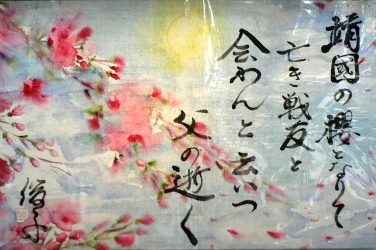 靖國の櫻となりて
亡き戦友と
会わんと云いつ
父の逝く
俊子